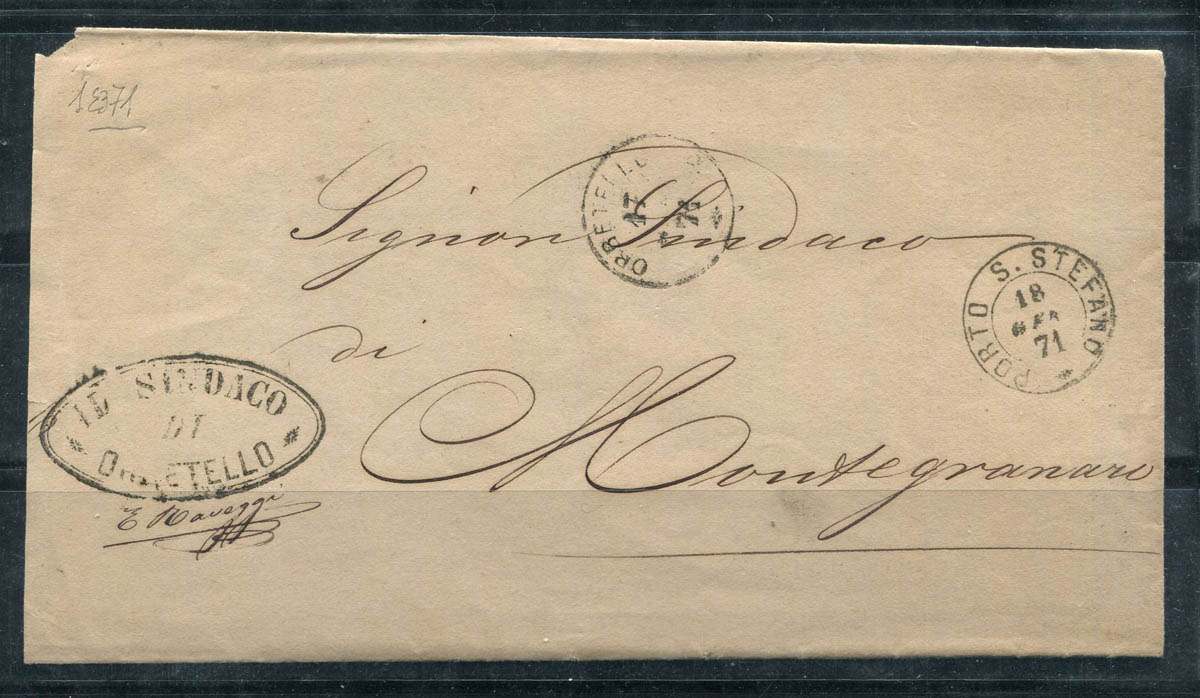 Signor Sindaco
di
Montegranaro
ORBETELLO
17
71
PORTO S. STEFANO
18
GEN
71
IL SINDACO
DI
ORBETELLO
E Raveggi